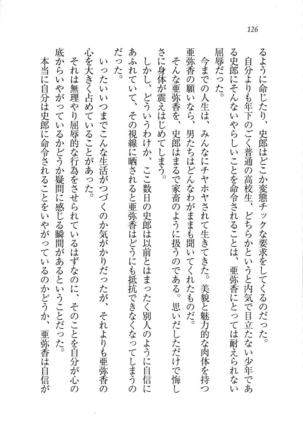 126
るように命じたり、史郎はどこか変態チックな要求をしてくるのだった。
自分よりも年下のごく普通の高校生、どちらかというと内気で目立たない少年であ
る史郎にそんないやらしいことを命令されることは、亜弥香にとっては耐えられない
屈辱だった。
今までの人生は、みんなにチヤホヤされて生きてきた。美貌と魅力的な肉体を持つ
亜弥香の願いなら、男たちはどんなわがままも聞いてくれたものだ。
そんな亜弥香を、史郎はまるで家畜のように扱うのである。思いだしただけで悔し
さに身体が震えはじめてしまう。
しかし、どういうわけか、ここ数日の史郎は以前とはまったく別人のように自信に
あふれていて、その視線に晒されると亜弥香はどうにも抵抗できなくなってしまうの
だった。
いったいいつまでこんな生活がつづくのか気がかりだったが、それよりも亜弥香の
心を大きく占めていることがあった。
それは無理やり屈辱的な行為をさせられているはずなのに、そのことを自分が心の
底からいやがっているかどうか疑問に感じる瞬間があるということだった。
本当に自分は史郎に命令されることをいやがっているのか、亜弥香は自信が